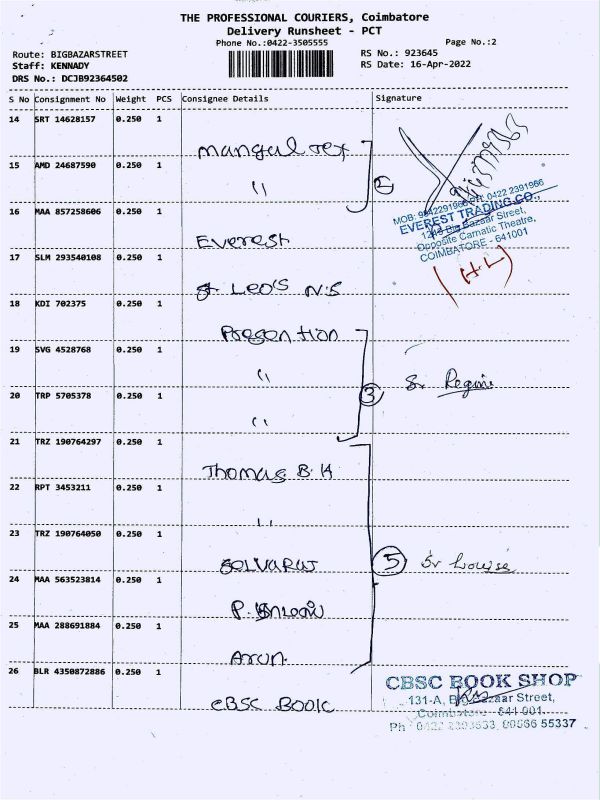 THE PROFESSIONAL COURIERS, Coimbatore
Delivery Runsheet - PCT
Phone No.:0422-3505555
Page No.:2
Route: BIGBAZARSTREET
RS No.: 923645
Staff: KENNADY
RS Date: 16-Apr-2022
DRS No.: DCJB92364502
S No Consignment No Weight PCS Consignee Details Signature
14 SRT 14628157 0.250 1
Mangal Tex
15 AMD 24687590 0.250 1
"
2
16 MAA 857258606 0.250 1
Everest
MOB: 9842291966 Off: 0422 2391966
EVEREST TRADING CO.,
1249 Big Bazaar Street,
Opposite Carnatic Theatre,
COIMBATORE - 641001
17 SLM 293540108 0.250 1
St Leo's N.S
(H.L)
18 KDI 702375 0.250 1
Presention
19 SVG 4528768 0.250 1
"
3
Sr Regini
20 TRP 5705378 0.250 1
"
21 TRZ 190764297 0.250 1
Thomas B.H
22 RPT 3453211 0.250 1
"
23 TRZ 190764050 0.250 1
SELVARAJ
5
Sr Louise
24 MAA 563523814 0.250 1
P.
25 MAA 288691884 0.250 1
Arun
26 BLR 4350872886 0.250 1
CBSC BOOK
CBSC BOOK SHOP
131-A, Big Bazaar Street,
Coimbatore - 641 001.
55337